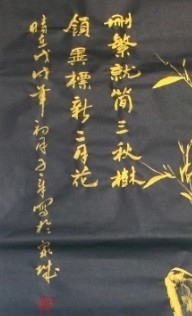 刪繁就简三秋樹
領異標新二月花
時在戊戌年初月子年寫於家珠